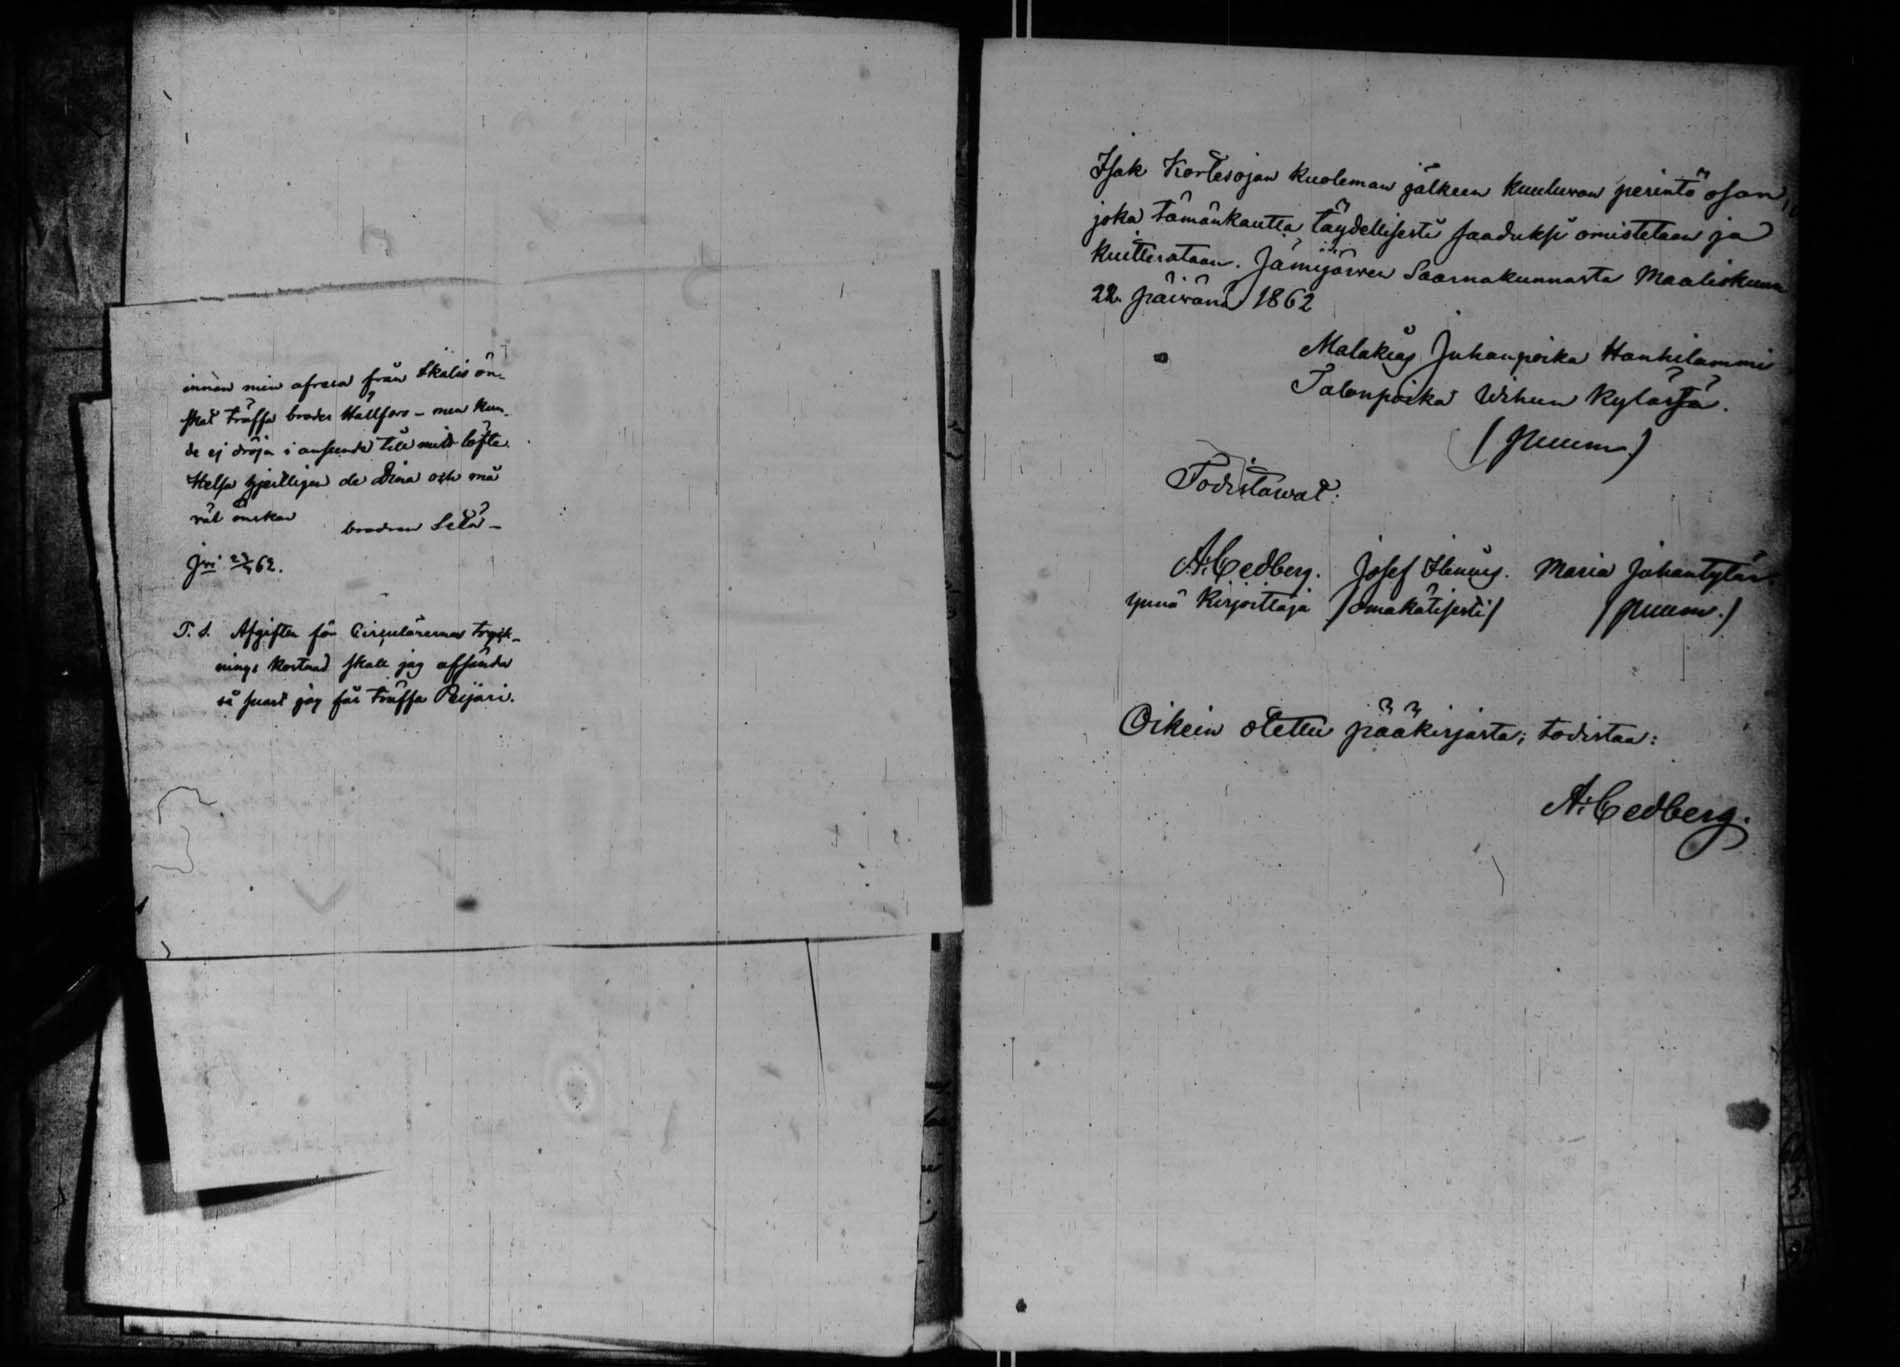 innan min afresa från Skalis ön-
skat träffa broder Hallfors - men kun-
de ej dröja i anseende till mitt löfte.
Helsa hjertligen de Dina och må
väl önskar brodren
Jvi 62.
P. S. Afgiften för Circulärernas tryck-
nings kostnad skall jag afsända
så snart jag får träffa Peijari.
Isak Kortesojan kuoleman jälkeen kuuluvan perintö osan,
joka tämänkautta täydellisesti saaduksi omistetaan ja
kuitterataan. Jämijärven Saarnakunnasta Maaliskuun
22. päivänä 1862
Malakias Juhanpoika Hanhilammi
Talonpoika Vihun kylästä.
(puum.)
Todistavat:
A. Cedberg. Josef Maria Juhantytär
ynnä kirjoittaja /omakätisesti/ /puum./
Oikein otettu pääkirjasta; todistaa:
A. Cedberg.